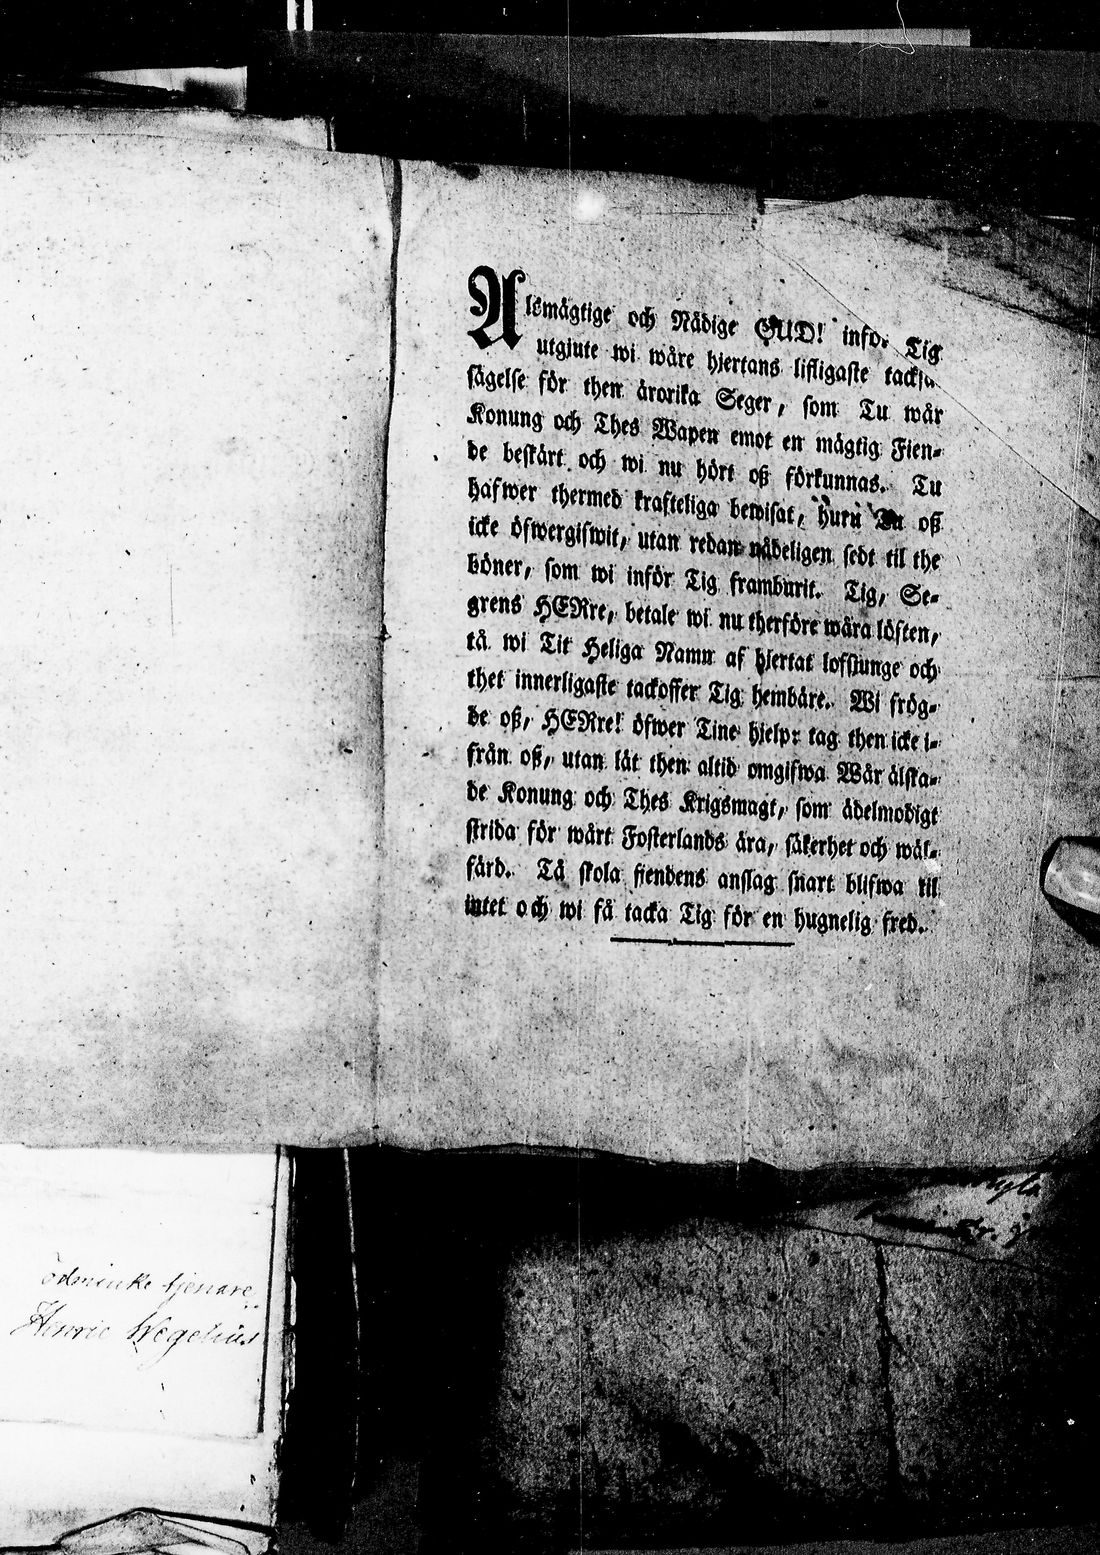 Alsmägtige och Nådige GUD! inför Tig
utgjute wi wåre hjertans lifligaste tacksä-
sägelse för then ärorika Seger, som Tu wår
Konung och Thes Wapen emot en mägtig Fien-
de beskärt och wi nu hört oß förkunnas. Tu
hafwer thermed krafteliga bewisat, huru Tu oß
icke öfwergifwit, utan redan nådeligen sedt til the
böner, som wi inför Tig framburit. Tig, Se-
grens HERre, betale wi nu therföre wåra löften,
tå wi Tit Heliga Namn af hjertat lofsjunge och
thet innerligaste tackoffer Tig hembäre. Wi frög-
de oß, HERre! öfwer Tine hjelp: tag then icke i-
från oß, utan låt then altid omgifwa Wår älska-
de Konung och Thes Krigsmagt, som ädelmodigt
strida för wårt Fosterlands ära, säkerhet och wäl-
färd. Tå skola fiendens anslag snart blifwa til
intet och wi få tacka Tig för en hugnelig fred.
ödminke tjenare
Henric Wegelius